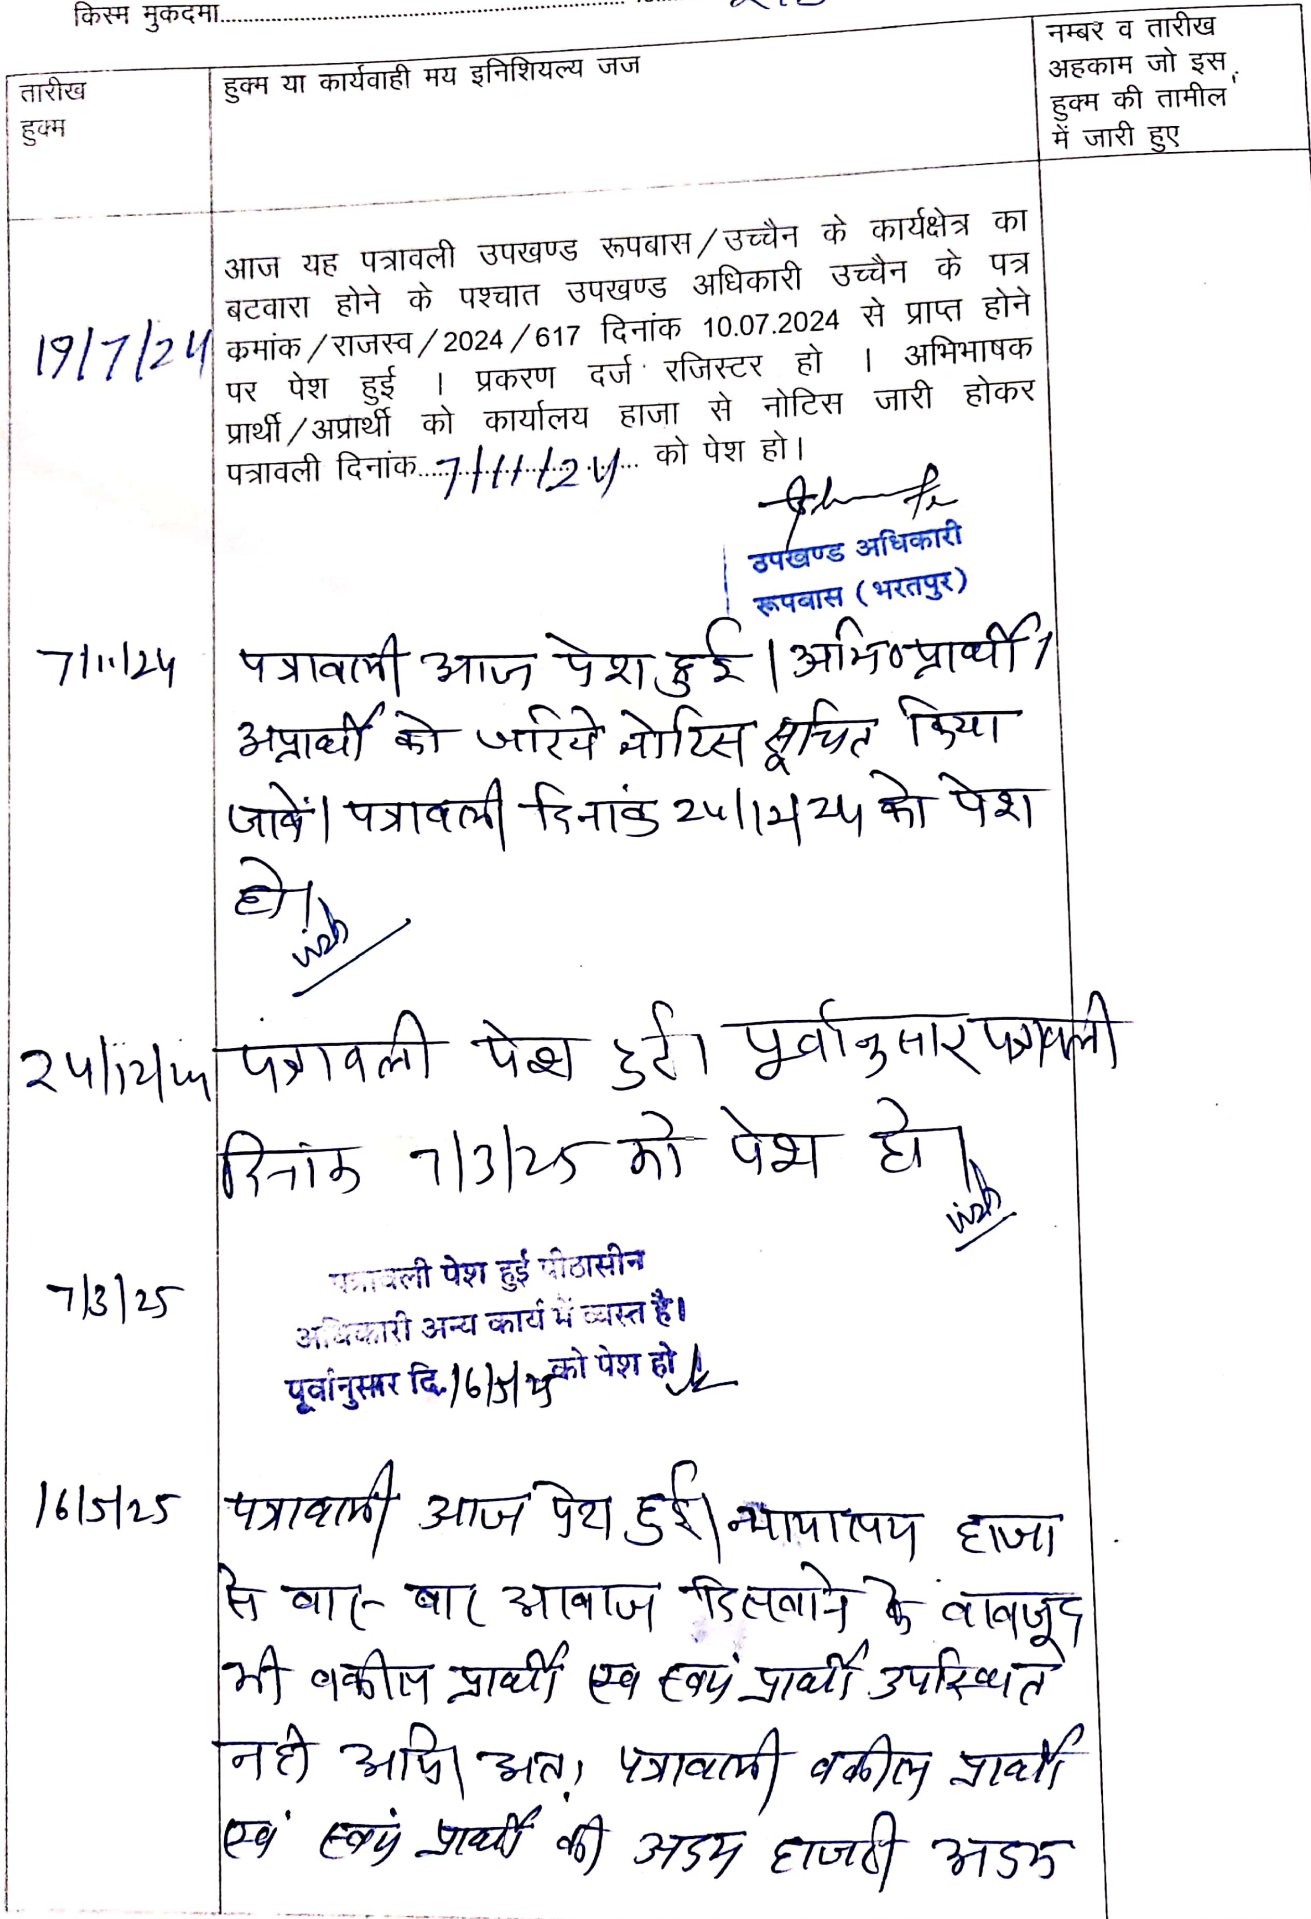 किस्म मुकदमा
तारीख हुक्म
हुक्म या कार्यवाही मय इनिशियल्य जज
नम्बर व तारीख
अहकाम जो इस
हुक्म की तामील
में जारी हुए
19/7/24
आज यह पत्रावली उपखण्ड रूपबास/उच्चैन के कार्यक्षेत्र का
बटवारा होने के पश्चात उपखण्ड अधिकारी उच्चैन के पत्र
कमांक/राजस्व/2024/617 दिनांक 10.07.2024 से प्राप्त होने
पर पेश हुई । प्रकरण दर्ज रजिस्टर हो । अभिभाषक
प्रार्थी/अप्रार्थी को कार्यालय हाजा से नोटिस जारी होकर
पत्रावली दिनांक 7/11/24 को पेश हो।
उपखण्ड अधिकारी
रूपबास (भरतपुर)
7/11/24
पत्रावली आज पेश हुई। अभि०प्रार्थी/
अप्रार्थी को जरिये नोटिस सूचित किया
जावें। पत्रावली दिनांक 24/12/24 को पेश
हो।
24/12/24
पत्रावली पेश हुई। पूर्वानुसार पत्रावली
दिनांक 7/3/25 को पेश हो।
7/3/25
पत्रावली पेश हुई पीठासीन
अधिकारी अन्य कार्य में व्यस्त है।
पूर्वानुसार दि. 16/5/25 को पेश हो।
16/5/25
पत्रावली आज पेश हुई। न्यायालय हाजा
से बार-बार आवाज दिलवाने के बावजूद
भी वकील प्रार्थी एव स्वयं प्रार्थी उपस्थित
नही आये। अतः पत्रावली वकील प्रार्थी
एवं स्वयं प्रार्थी की अदम हाजरी अदम